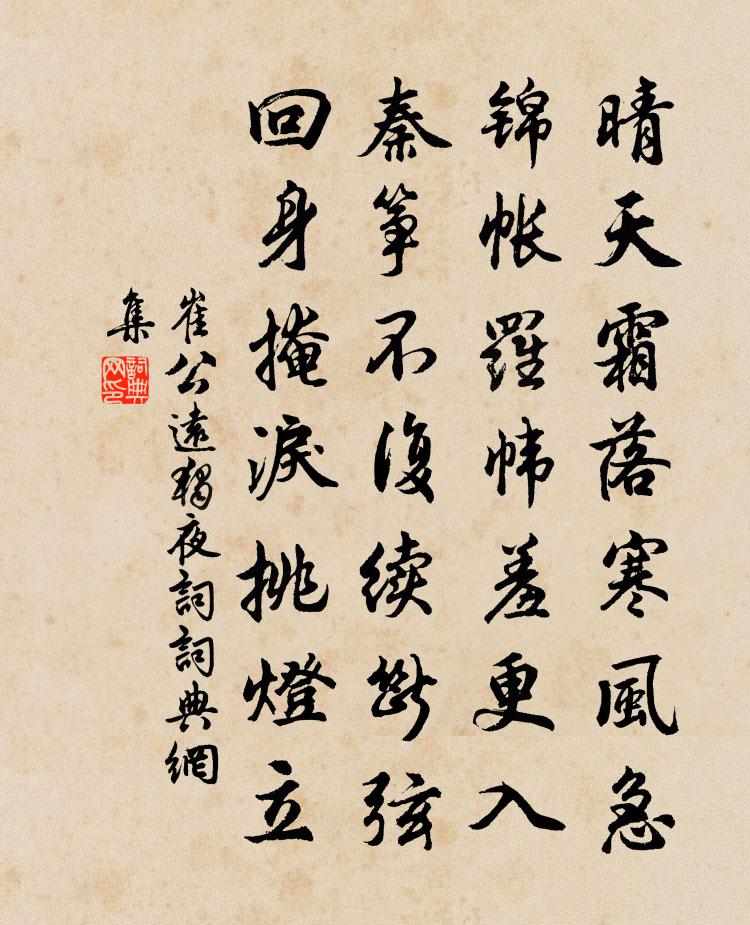 晴天霜落寒風急
锦帐羅帏羞更入
秦筝不復续斷弦
回身掩淚挑燈立
崔公遠獨夜詞詞典網
集
詞典
网印